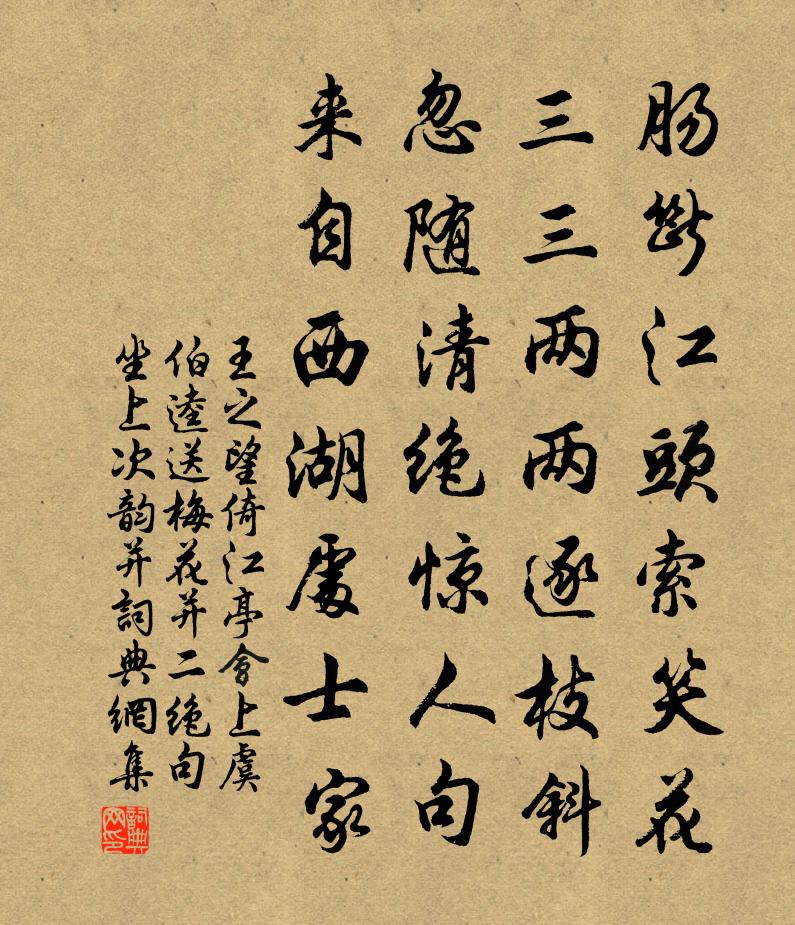 肠斷江頭索笑花
三三两两逐枝斜
忽随清绝惊人句
来自西湖處士家
王之望倚江亭會上虞
伯逵送梅花并二绝句
坐上次韵并詞典網集
詞典网印